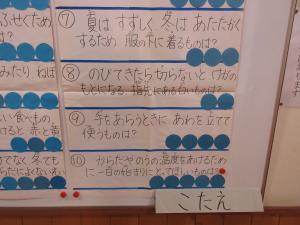 ふせぐため
⑦ 夏は すずしく 冬は あたたかく
するため 服の下に 着るものは?
みたり ねば
⑧ のびてきたら切らないと けがの
もとになる 指先にある白いものは?
い食べもの
けると 赤と黄
⑨ 手をあらうときに あわを立てて
使うものは?
でなく 冬でも
⑩ からだやのうの温度をあげるため
に 一日の始まりに とってほしいものは?
こたえ